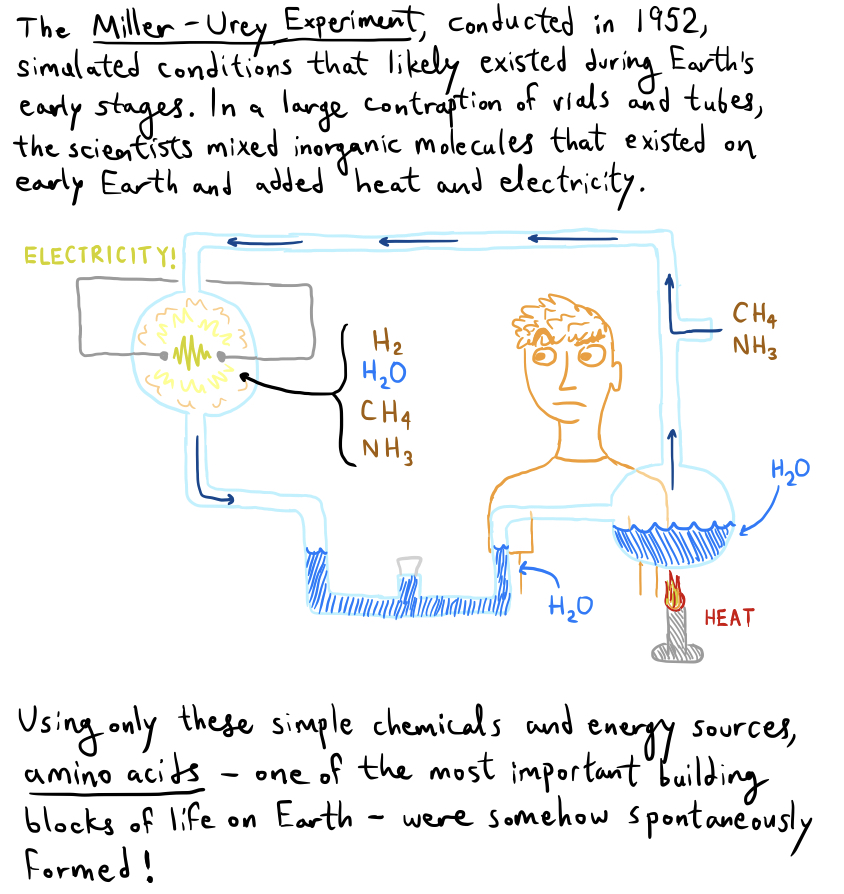 The Miller-Urey Experiment, conducted in 1952,
simulated conditions that likely existed during Earth's
early stages. In a large contraption of vials and tubes,
the scientists mixed inorganic molecules that existed on
early Earth and added heat and electricity.
ELECTRICITY!
CH₄
NH₃
H₂
H₂O
CH₄
NH₃
H₂O
H₂O
HEAT
Using only these simple chemicals and energy sources,
amino acids – one of the most important building
blocks of life on Earth – were somehow spontaneously
formed!